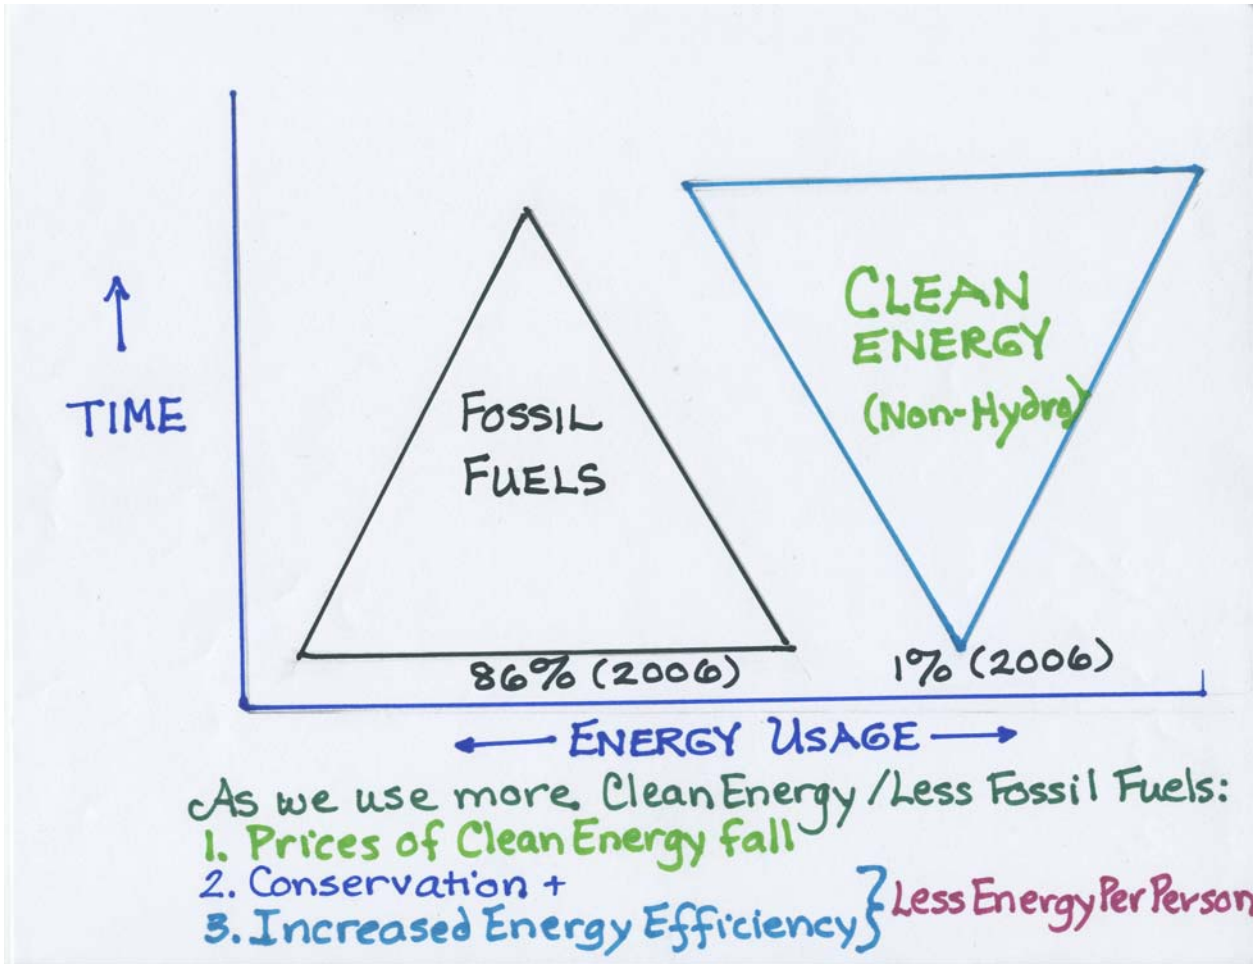 TIME
FOSSIL
FUELS
86% (2006)
CLEAN
ENERGY
(Non-Hydro)
1% (2006)
ENERGY USAGE
As we use more Clean Energy/Less Fossil Fuels:
1. Prices of Clean Energy fall
2. Conservation +
3. Increased Energy Efficiency
Less Energy Per Person